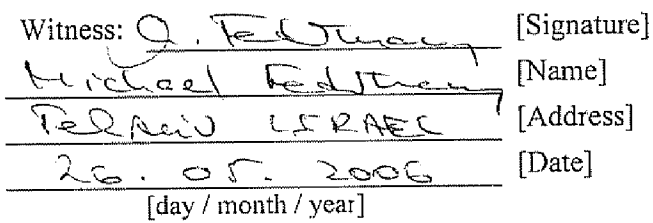 Witness: [Signature]
Michael [Name]
Tel Aviv ISRAEL [Address]
26. 05. 2006 [Date]
[day / month / year]